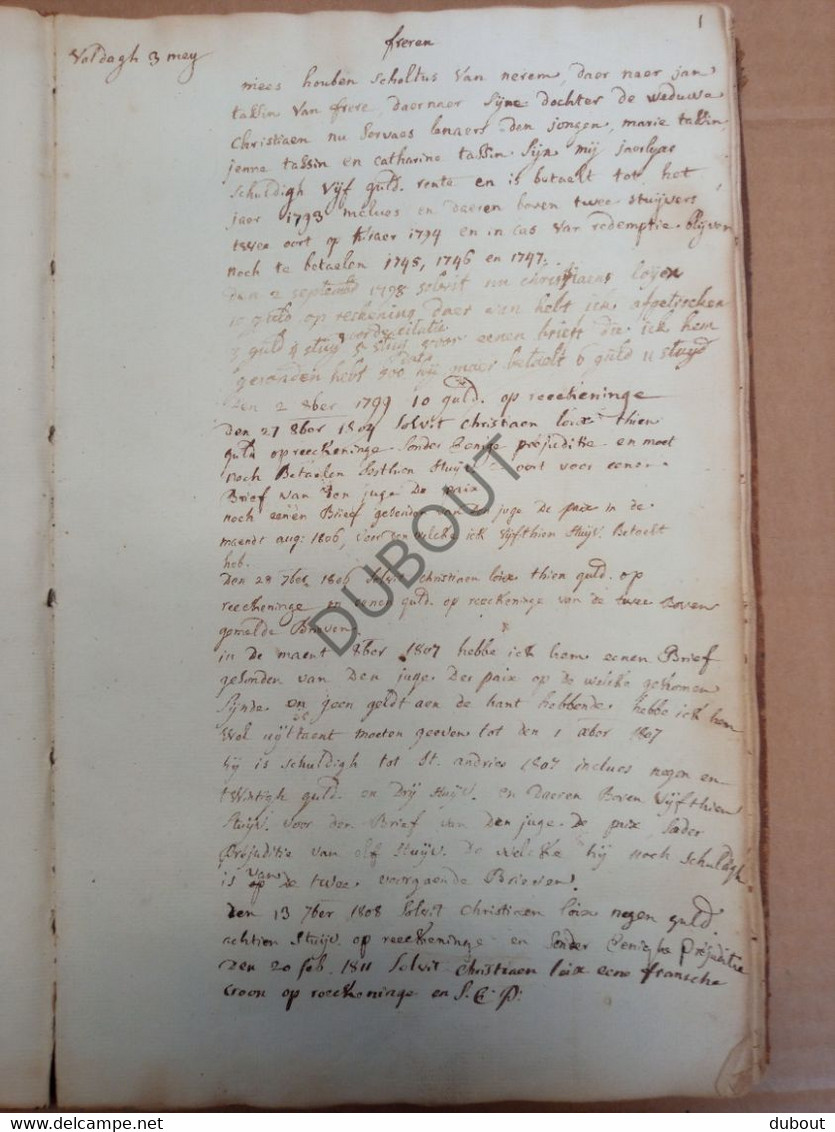 1
freren
Valdagh 3 mey
mees houben scholtus van nerem, daer naer jan
tassin van frere, daernaer sijne dochter de weduwe
Christiaen nu servaes lenaers den jongen, marie tassin
jenne tassin en catharine tassin sijn mij jaerlyxe
schuldigh vijf guld. rente en is betaelt tot het
jaer 1793 inclues en daeren boven twee stuijvers
twee oort op 't jaer 1794 en in cas van redemptie blijven
noch te betaelen 1745, 1746 en 1747.
den 2 septembr 1798 solvit nu christiaens loijx
10 guld op reckening daer van hebt ick afgetrocken
3 guld 4 stuij voor citatie 5 stuij voor eenen brieff die ick hem
gesonden hebt soo hij maer betaelt 6 guld 11 stuyv
Den 2 8ber 1799 10 guld. op reeckeninge
den 27 8ber 1804 Solvit Christiaen loix thien
guld op reeckeninge sonder Eenige prejuditie en moet
noch Betaelen Sesthien Stuijv 2 oort voor eenen
Brief van den juge De paix
noch eenen Brief gesonden van den juge De paix in de
maendt aug: 1806, voor den welcke ick vijfthien stuijv. Betaelt
heb.
Den 28 7ber 1806 Solvit christiaen loix thien guld. op
reeckeninge en eenen guld. op reeckeninge van de twee Boven
gemelde Brieven
in De maent 8ber 1807 hebbe ick hem eenen Brief
gesonden van Den juge Des paix op de welcke gekomen
Sijnde en geen geldt aen de hant hebbende hebbe ick hem
Wel uijtstaent moeten geeven tot den 1 xber 1807
hij is schuldigh tot St. andries 1807 inclues negen en
twintigh guld. en Drij stuijv. en Daeren Boven Vijfthien
Stuijv. voor den Brief van Den juge De paix, sonder
Prejuditie van elf stuijv. De welcke hij noch schuldigh
is van de twee voorgaende Brieven.
Den 13 7ber 1808 Solvit Christiaen loix negen guld.
achtien stuijv. op reeckeninge en sonder Eenighe Prejuditie
Den 20 feb. 1811 Solvit Christiaen loix eene fransche
croon op reeckeninge en S. E. P.
DUBOUT
WWW.DELCAMPE.NET
dubout